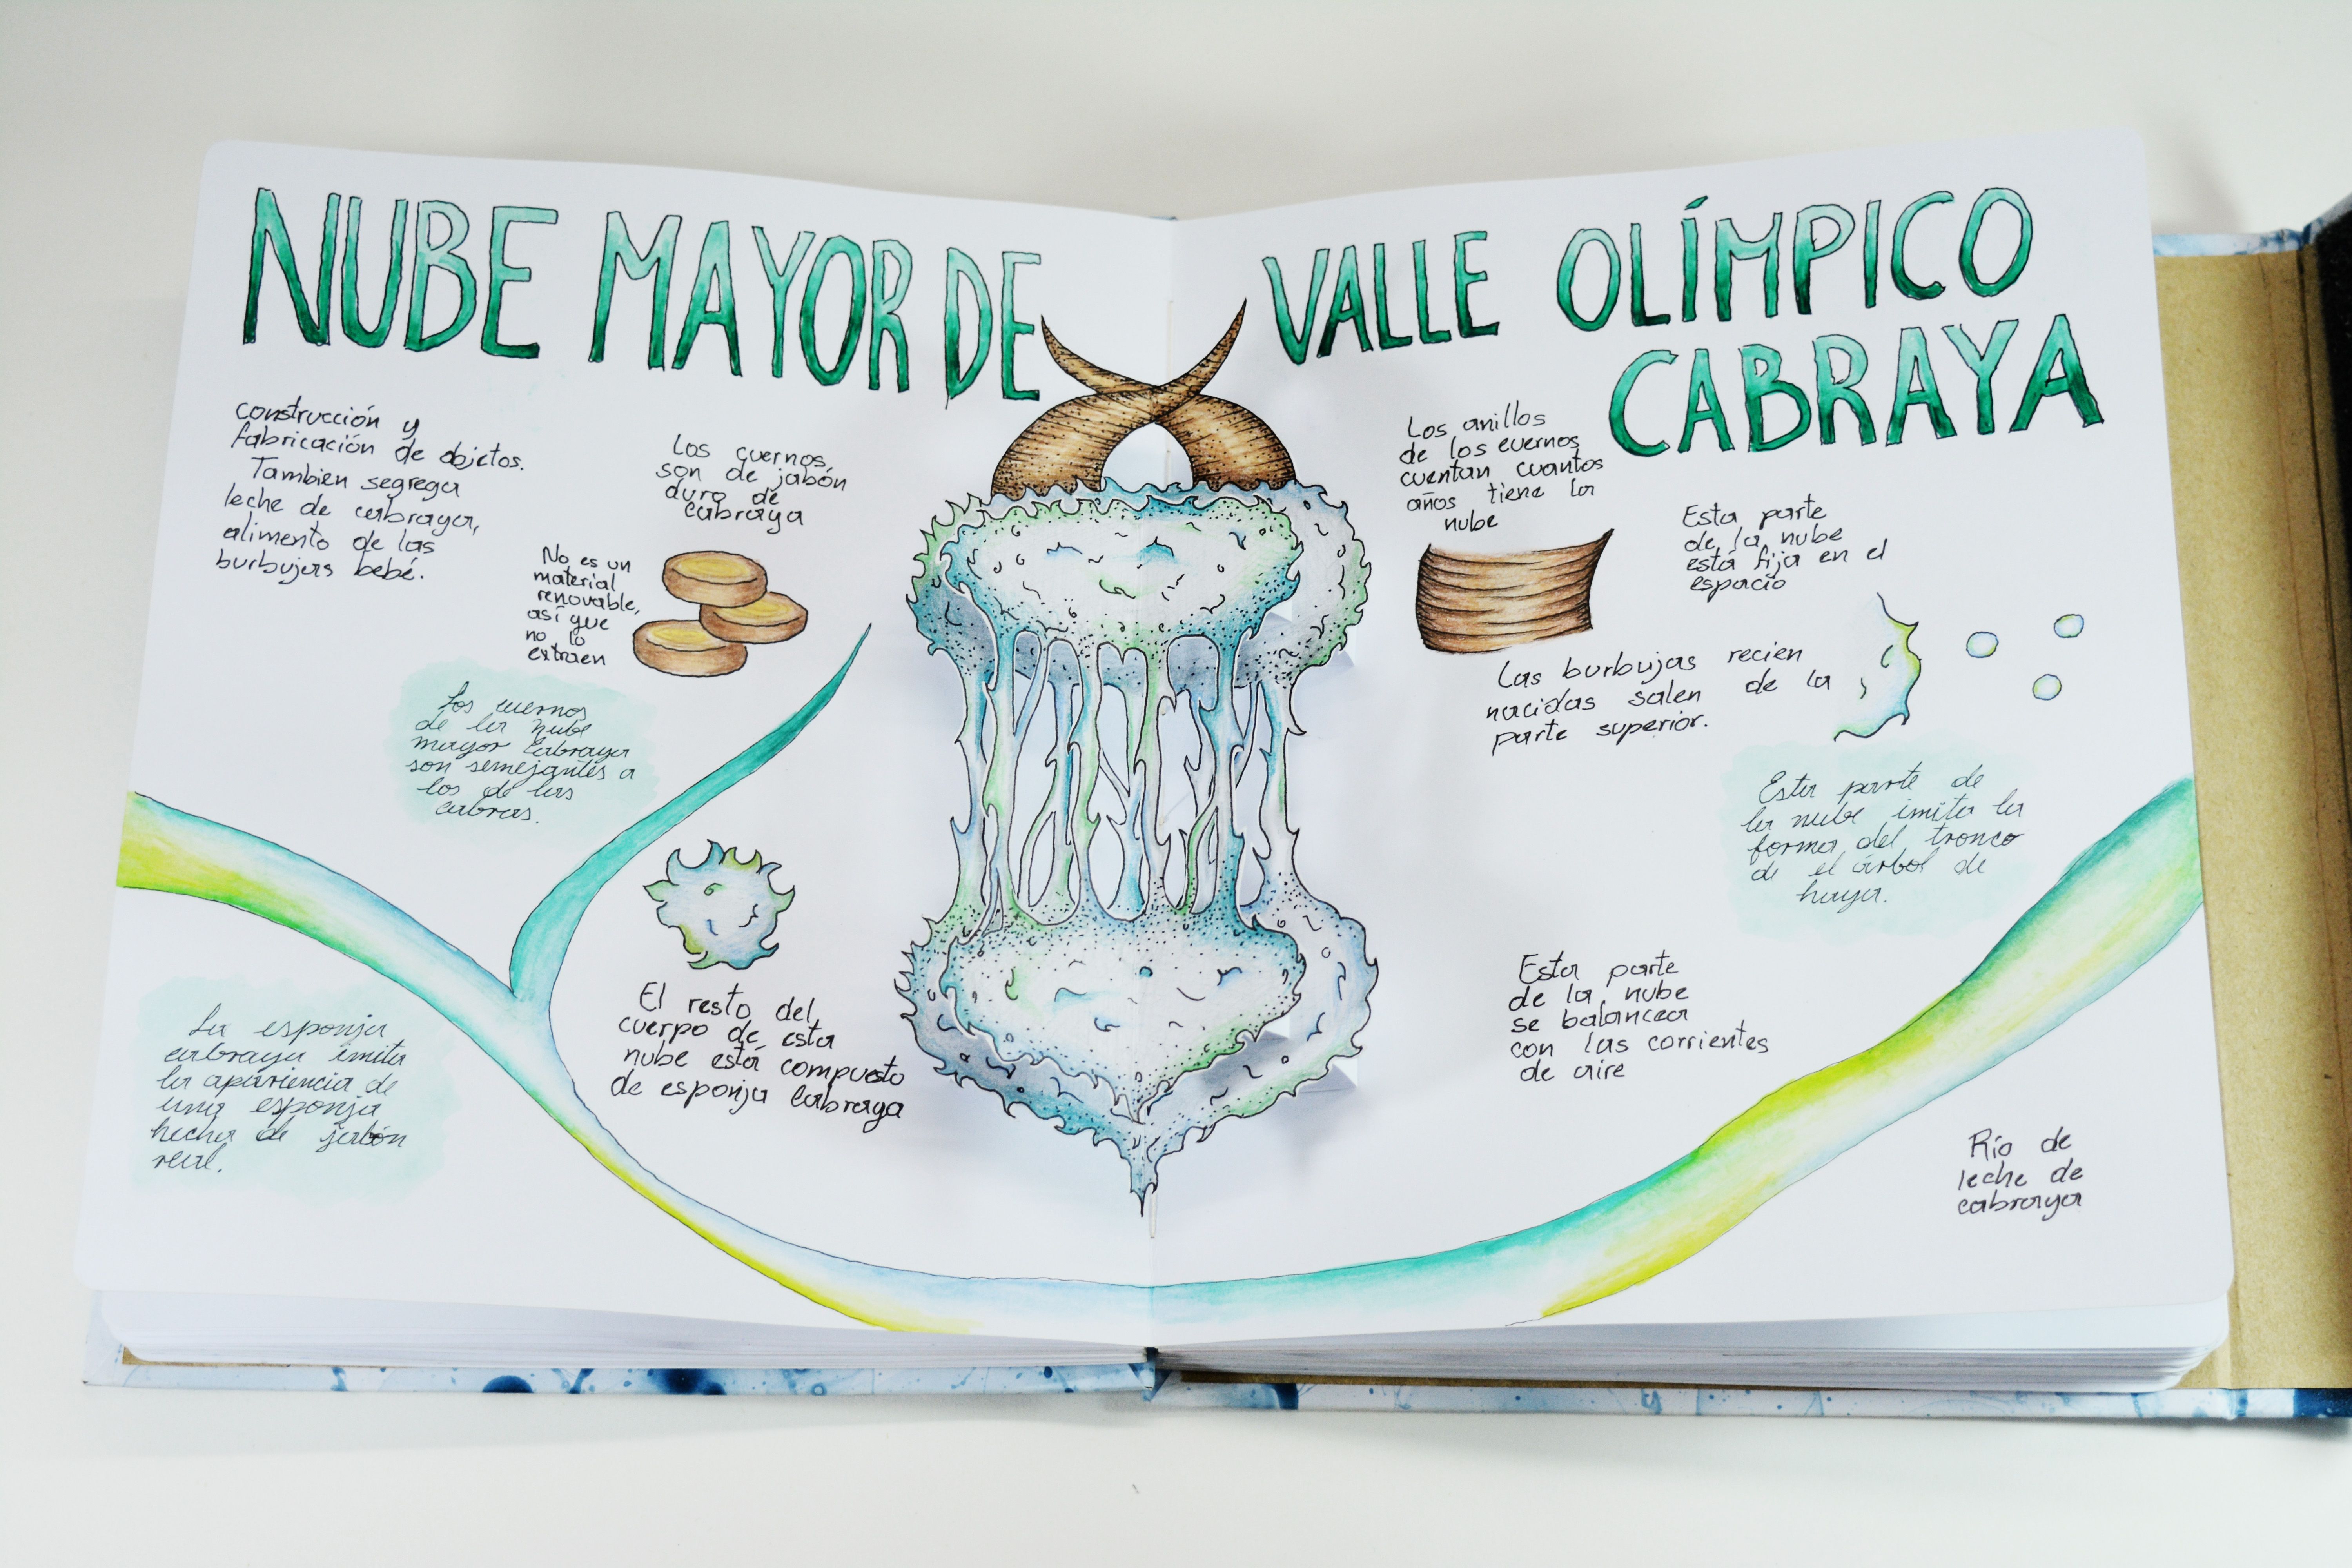 NUBE MAYOR DE VALLE OLÍMPICO
CABRAYA
construcción y
fabricación de objetos.
Tambien segrega
leche de cabraya,
alimento de las
burbujas bebé.
Los cuernos
son de jabón
duro de
cabraya
No es un
material
renovable,
así que
no lo
extraen
Los cuernos
de la nube
mayor Cabraya
son semejantes a
los de las
cabras.
La esponja
cabraya imita
la apariencia de
una esponja
hecha de jabón
real.
El resto del
cuerpo de esta
nube está compuesto
de esponja Cabraya
Los anillos
de los cuernos
cuentan cuantos
años tiene la
nube
Esta parte
de la nube
está fija en el
espacio
Las burbujas recien
nacidas salen de la
parte superior.
Esta parte de
la nube imita la
forma del tronco
de el árbol de
haya.
Esta parte
de la nube
se balancea
con las corrientes
de aire
Río de
leche de
cabraya